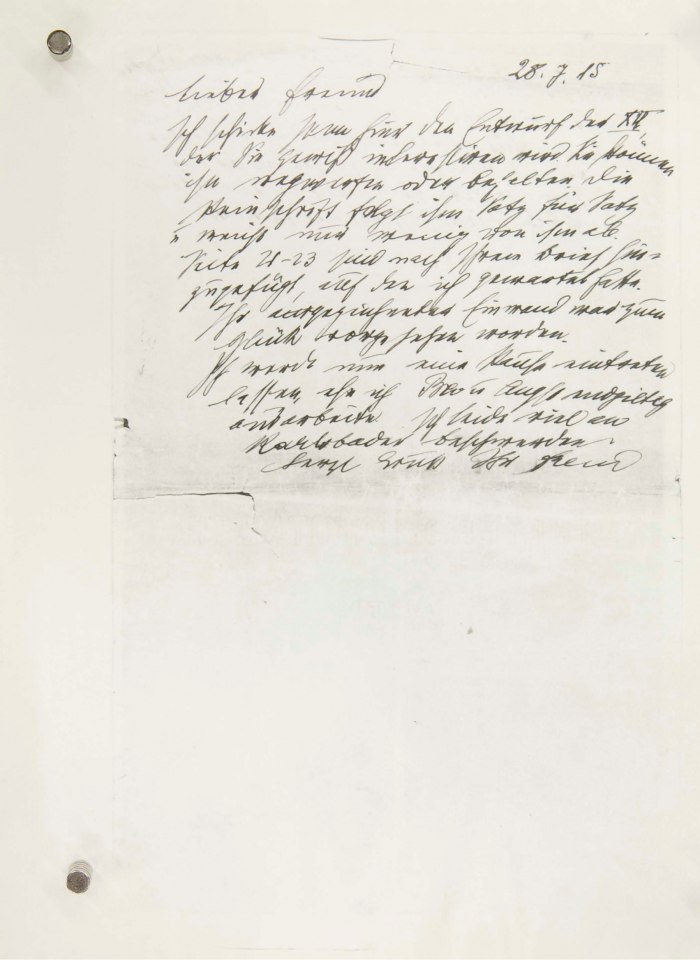 28. 7. 15
Lieber Freund
Ich schicke Ihnen hier den Entwurf der XII,
der Sie gewiß interessiren wird. Sie können
ihn wegwerfen oder behalten. Die
Reinschrift folgt ihm Satz für Satz
u weicht nur wenig von ihm ab.
Seite 21-23 sind nach Ihrem Brief hin-
zugefügt, auf den ich gewartet hatte.
Ihr ausgezeichneter Einwand war zum
Glück vorgesehen worden.
Ich werde nun eine Pause eintreten
lassen, ehe ich Bw u Angst endgiltig
ausarbeite. Ich leide viel an
Karlsbader Beschwerden.
Herzl Gruß Ihr Freud